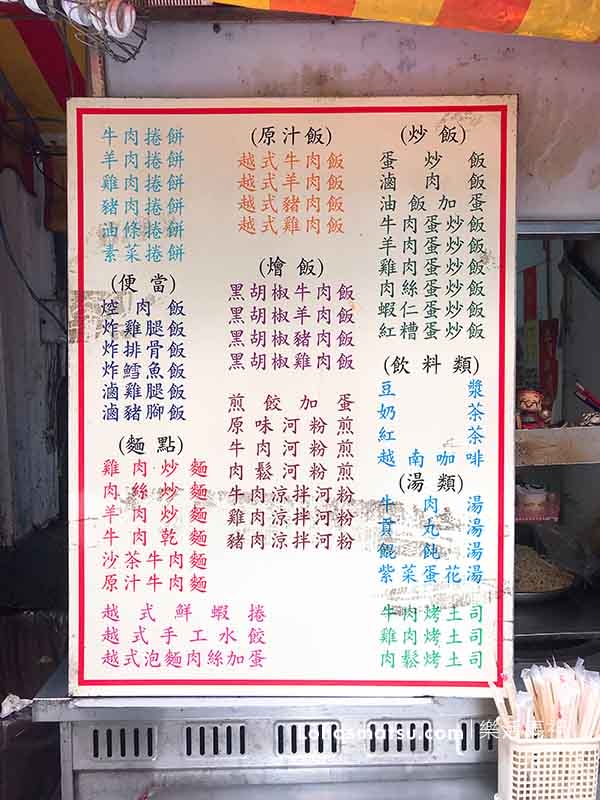 牛肉捲餅
羊肉捲餅
雞肉捲餅
豬肉捲餅
油條捲餅
素菜捲餅
(便當)
焢肉飯
炸雞腿飯
炸排骨飯
炸鱈魚飯
滷雞腿飯
滷豬腳飯
(麵點)
雞肉炒麵
肉絲炒麵
羊肉炒麵
牛肉乾麵
沙茶牛肉麵
原汁牛肉麵
越式鮮蝦捲
越式手工水餃
越式泡麵肉絲加蛋
(原汁飯)
越式牛肉飯
越式羊肉飯
越式豬肉飯
越式雞肉飯
(燴飯)
黑胡椒牛肉飯
黑胡椒羊肉飯
黑胡椒豬肉飯
黑胡椒雞肉飯
煎餃加蛋
原味河粉煎
牛肉河粉煎
肉鬆河粉煎
牛肉涼拌河粉
雞肉涼拌河粉
豬肉涼拌河粉
(炒飯)
蛋炒飯
滷肉飯
油飯加蛋
牛肉蛋炒飯
羊肉蛋炒飯
雞肉蛋炒飯
肉絲蛋炒飯
蝦仁蛋炒飯
紅糟蛋炒飯
(飲料類)
豆漿
奶茶
紅茶
越南咖啡
(湯類)
牛肉湯
貢丸湯
餛飩湯
紫菜蛋花湯
牛肉烤土司
雞肉烤土司
肉鬆烤土司